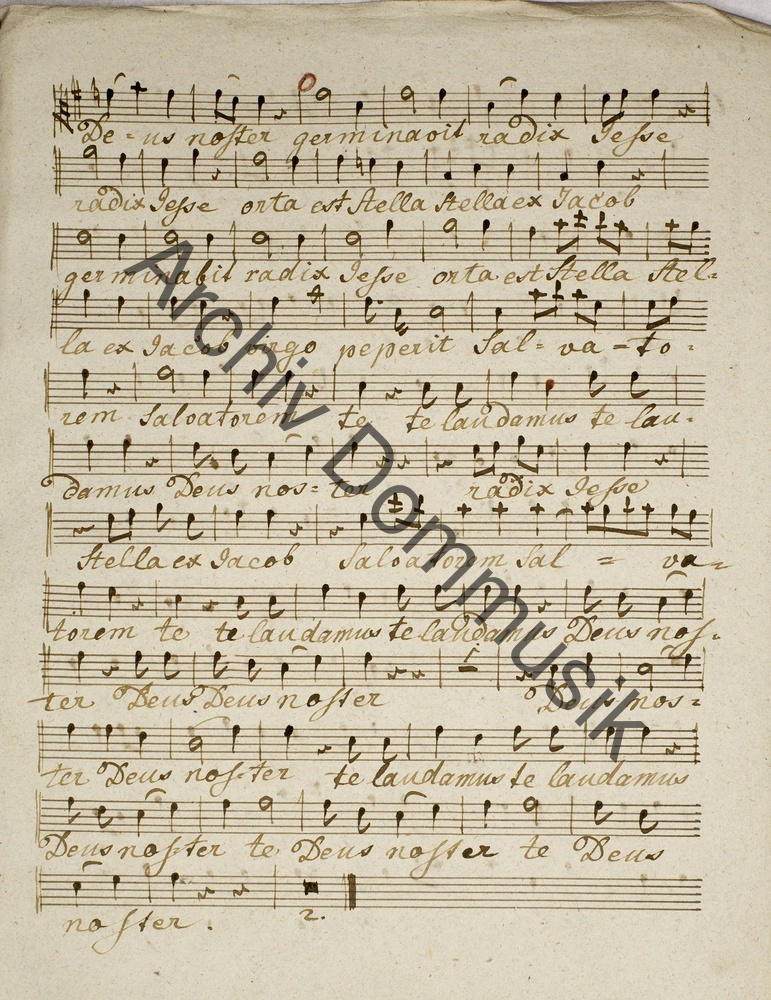 De-us noster germinavit radix Jesse
radix Jesse orta est Stella Stella ex Jacob
germinabit radix Jesse orta est Stella Stel-
la ex Jacob virgo peperit Sal-va-to-
rem Salvatorem te te laudamus te lau-
damus Deus nos-ter radix Jesse
Stella ex Jacob Salvatorem Sal = va=
torem te te laudamus te laudamus Deus nos-
ter Deus Deus noster Deus nos=
ter Deus nos-ter te laudamus te laudamus
Deus noster te Deus noster te Deus
noster.
2.
Archiv Dommusik